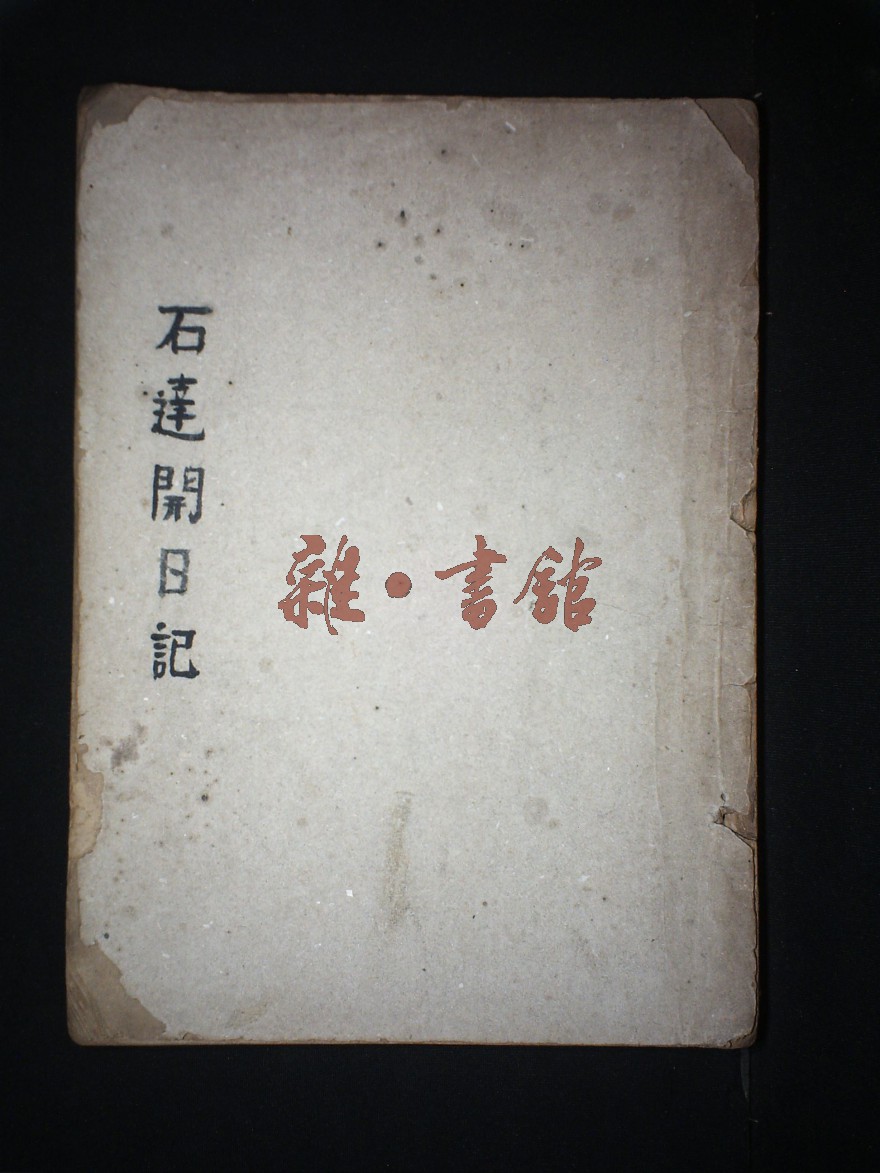 石達開日記
雜·書館